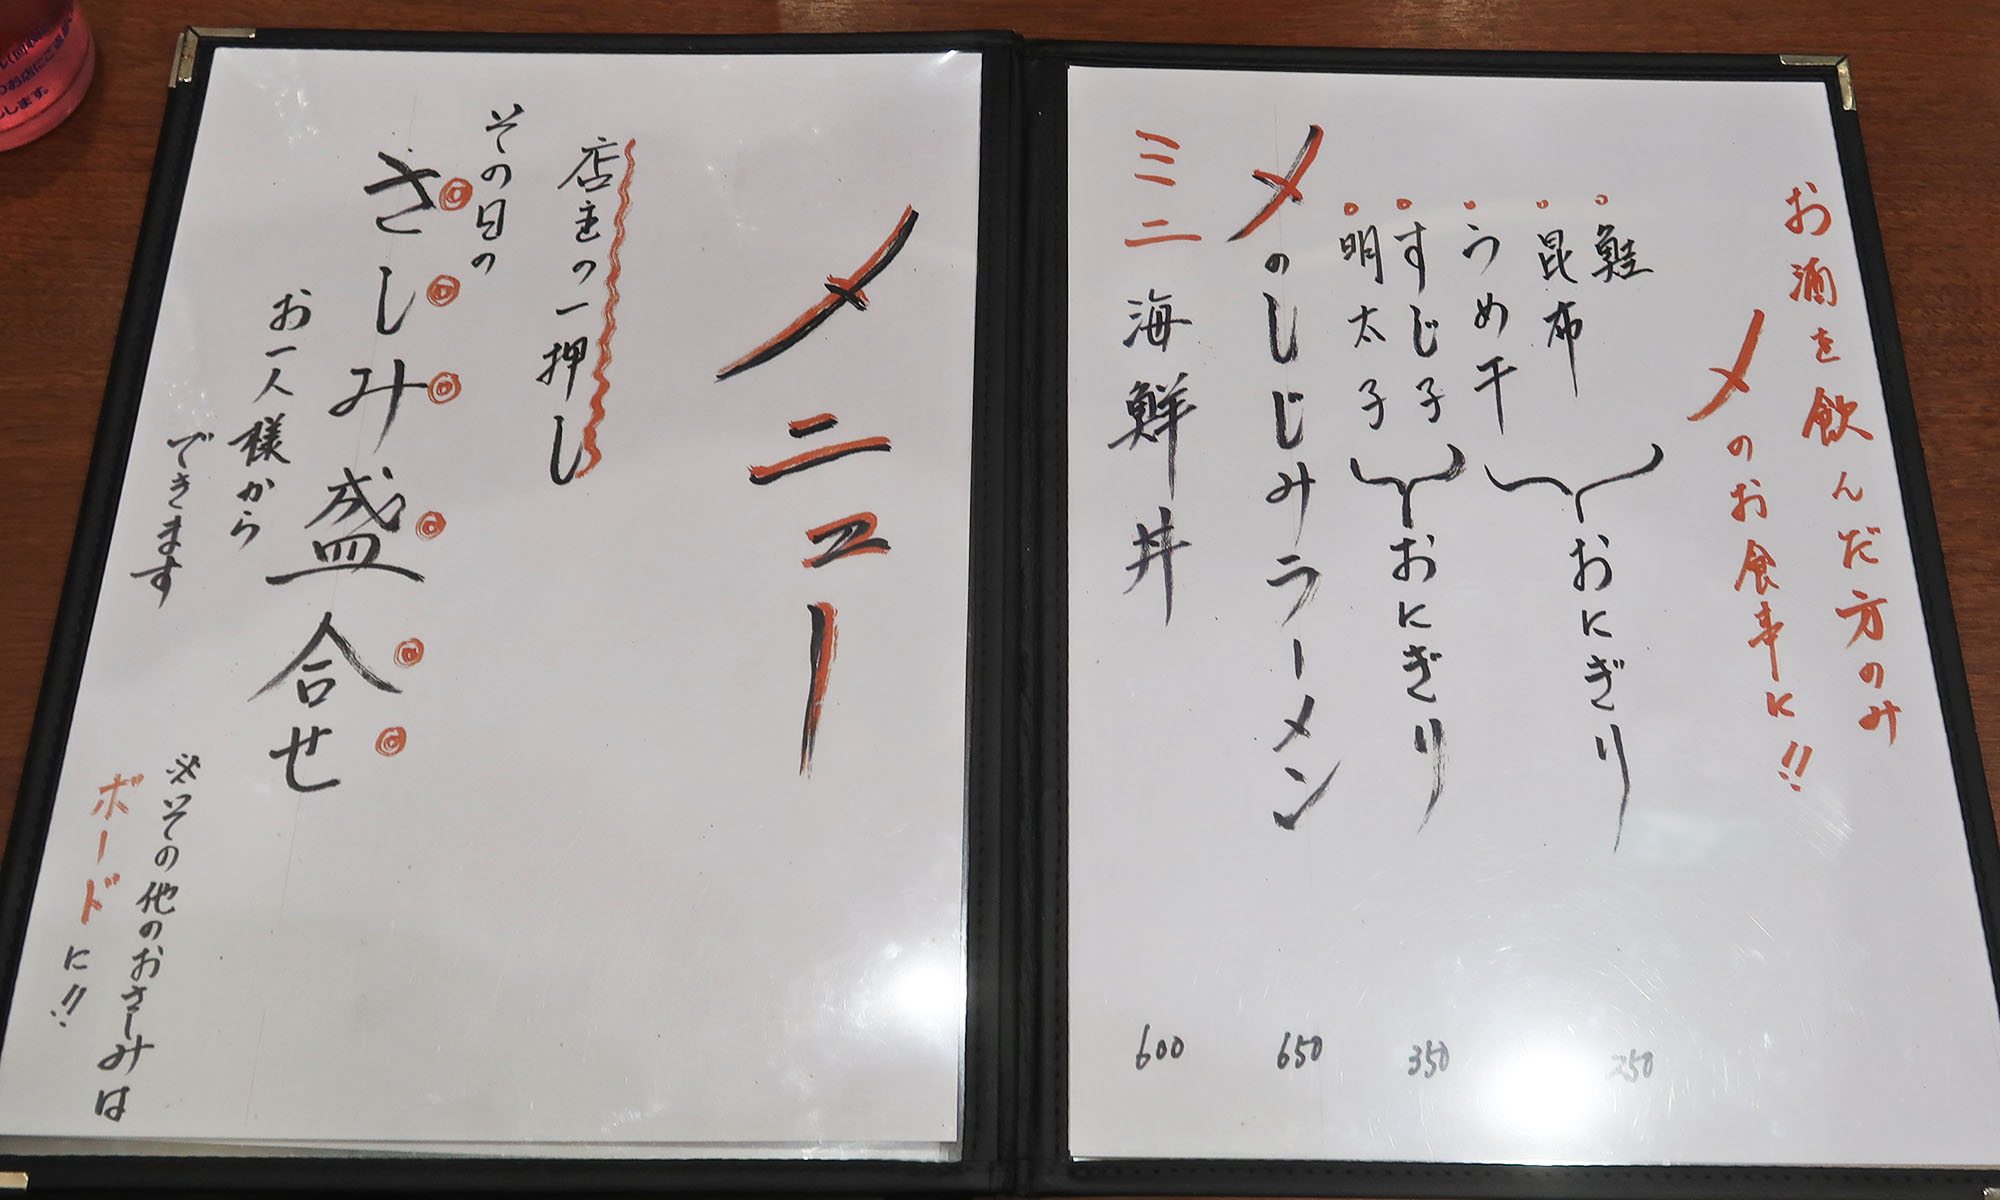 お酒を飲んだ方のみ
〆のお食事に!!
鮭
昆布
うめ干
おにぎり
250
すじ子
明太子
おにぎり
350
〆のしじみラーメン
650
ミニ海鮮丼
600
メニュー
店主の一押し
その日の
さしみ盛合せ
お一人様から
できます
※その他のおさしみは
ボードに!!